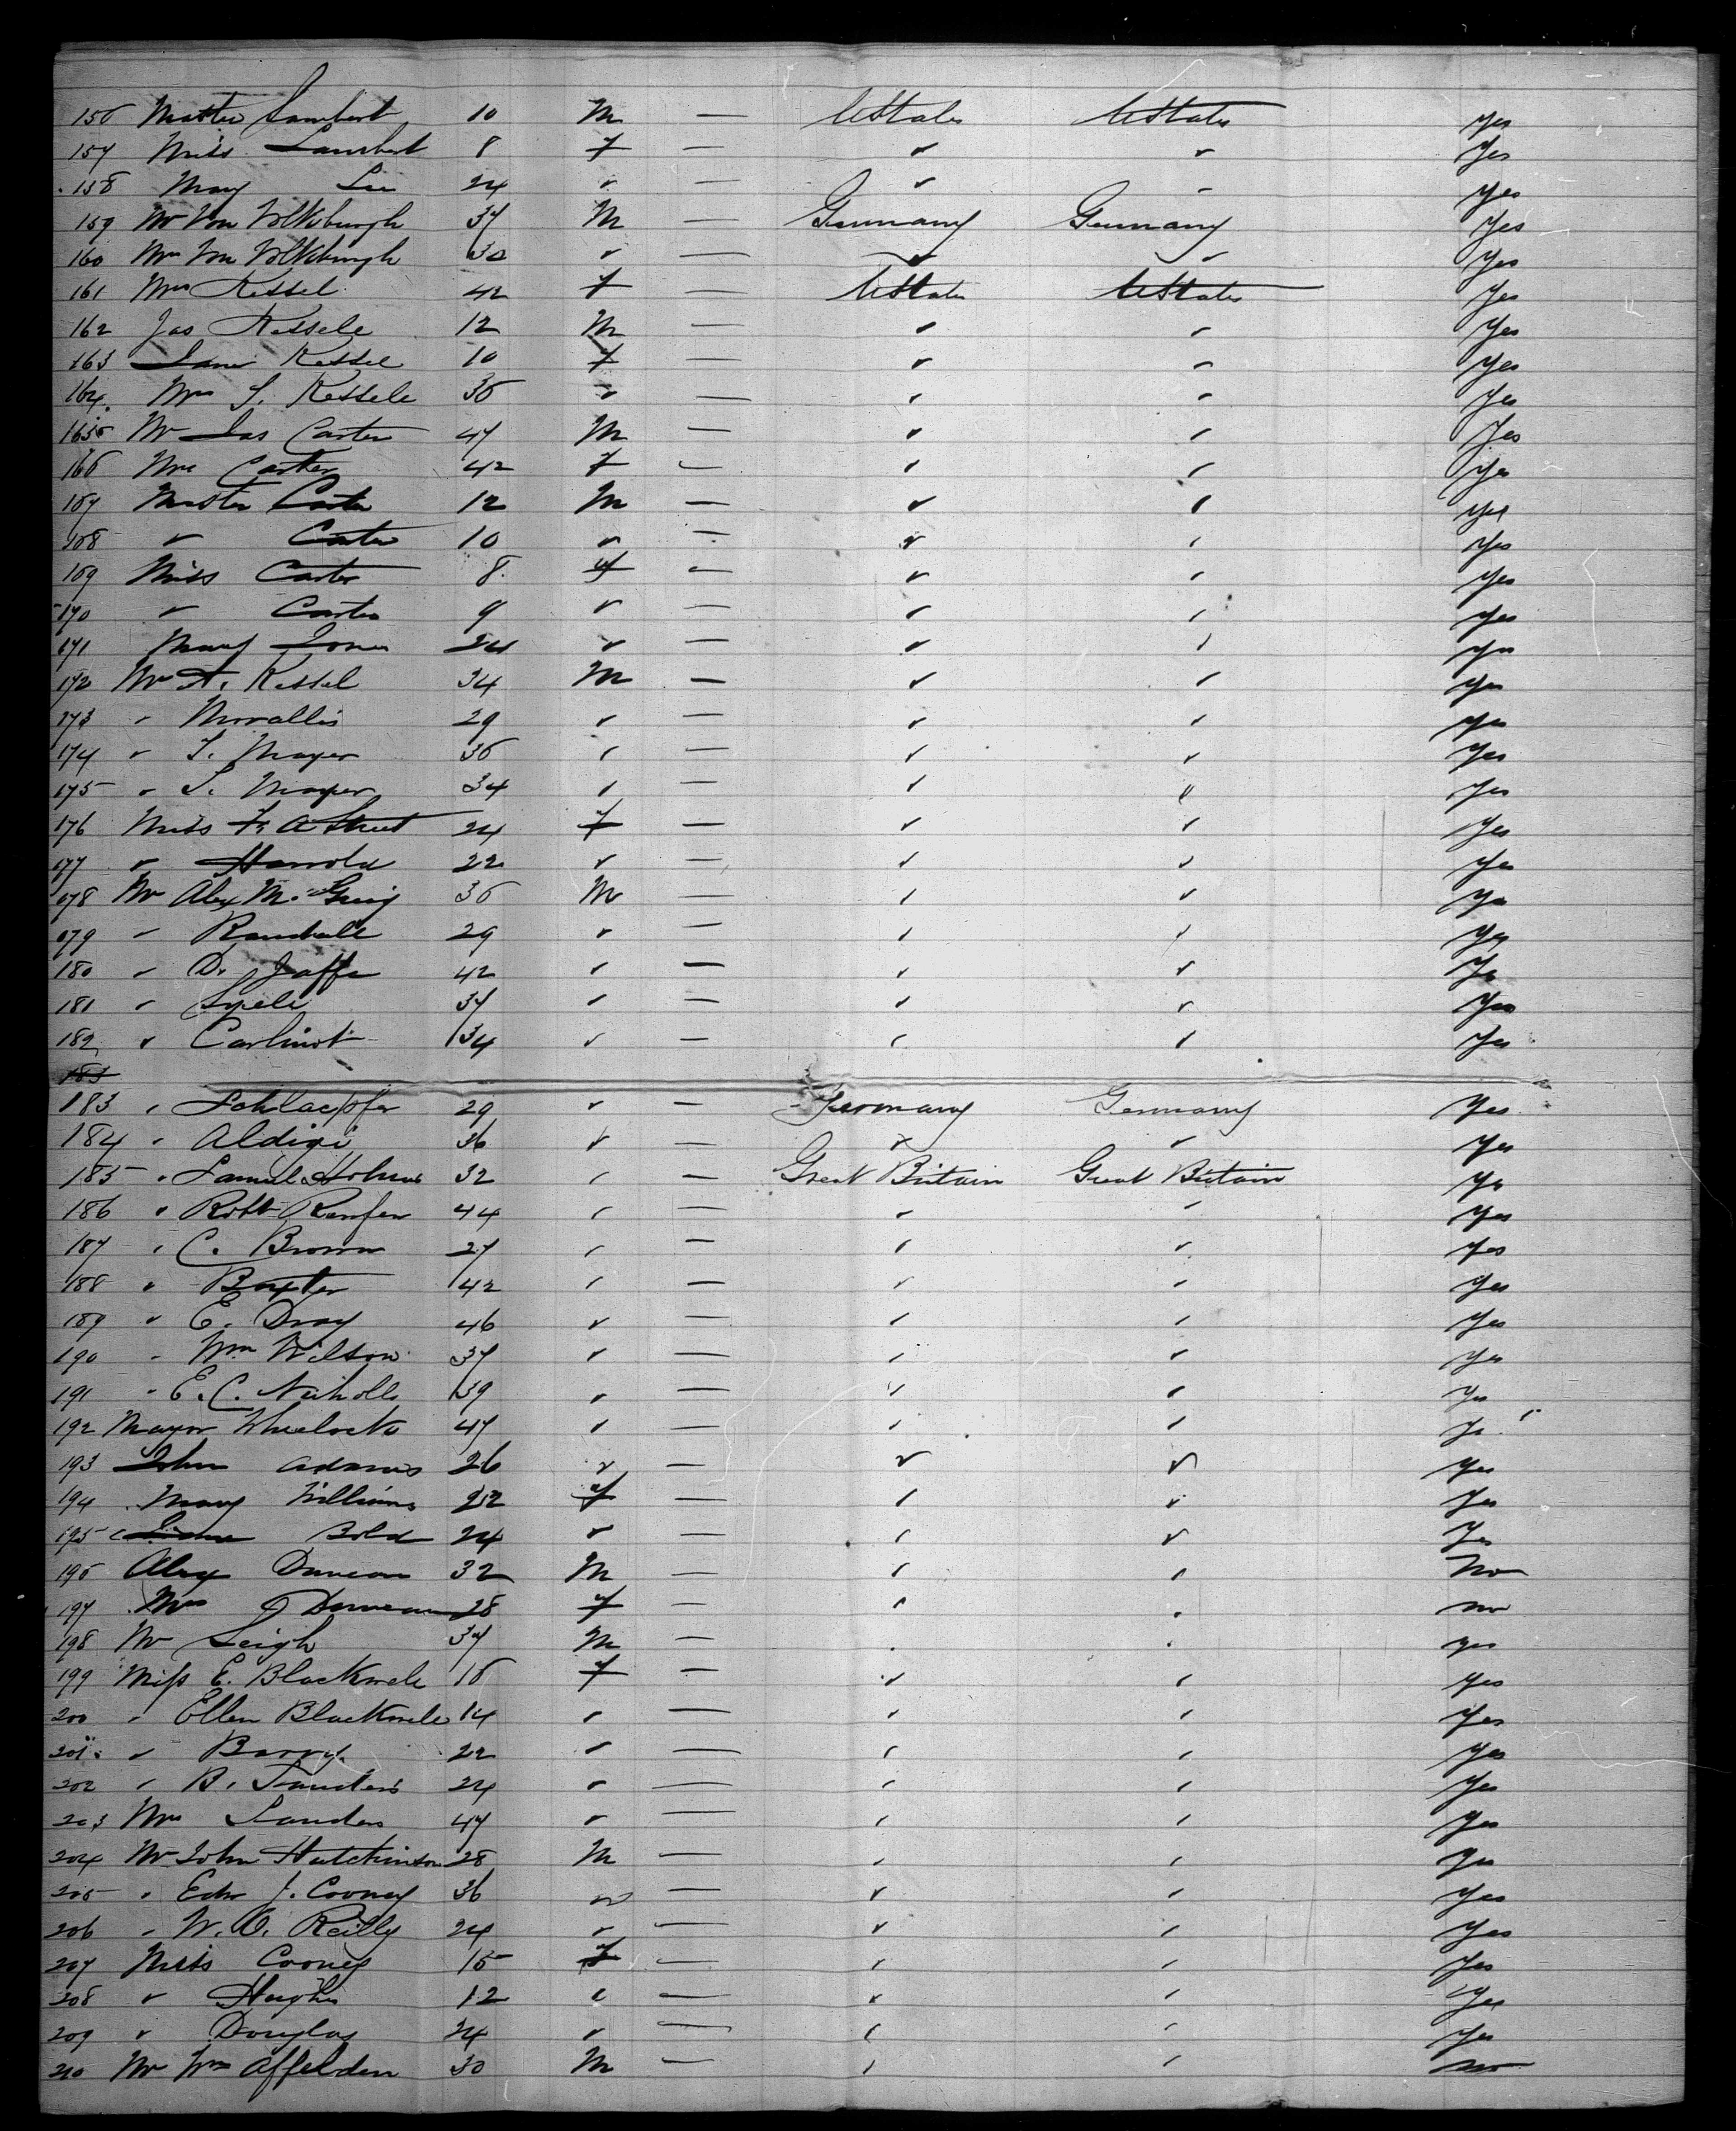 156 Master Lambert 10 M — UStates UStates Yes
157 Miss Lambert 8 f — " " Yes
158 Mary Lee 24 " — " " Yes
159 Mr Von Volkburgh 37 M — Germany Germany Yes
160 Mrs Von Volkburgh 30 " — " " Yes
161 Mrs Kessel 42 f — UStates UStates Yes
162 Jas Kessele 12 M — " " Yes
163 Kessel 10 f — " " Yes
164. Mrs S. Kessele 36 " — " " Yes
165 Mr Jas Carter 47 M — " " Yes
166 Mrs Carter 42 f — " " Yes
167 Master Carter 12 M — " " Yes
168 " Carter 10 " — " " Yes
169 Miss Carter 8. f — " " Yes
170 " Carter 9 " — " " Yes
171 Mary Jones 24 " — " " Yes
172 Mr A. Kessel 34 M — " " Yes
173 " Morallis 29 " — " " Yes
174 " S. Mayer 36 " — " " Yes
175 " S. Mayer 34 " — " " Yes
176 Miss F. A Street 24 f — " " Yes
177 " Harrold 22 " — " " Yes
178 Mr Alex M. Greig 36 M — " " Yes
179 " Randall 29 " — " " Yes
180 " D. Jaffe 42 " — " " Yes
181 " 37 " — " " Yes
182 " 34 " — " " Yes
183
183 " Schlaepfer 29 " — Germany Germany Yes
184 " Aldigi 36 " — " " Yes
185 " Samuel Holmes 32 " — Great Britain Great Britain Yes
186 " Robt Renfer 44 " — " " Yes
187 " C. Brown 27 " — " " Yes
188 " Baxter 42 " — " " Yes
189 " E. Dray 46 " — " " Yes
190 " Wm Wilson 37 " — " " Yes
191 " E. C. Nicholls 39 " — " " Yes
192 Mayor Wheelock 47 " — " " Yes
193 John Adams 26 " — " " Yes
194 Mary Williams 22 f — " " Yes
195 Bold 24 " — " " Yes
196 Alex Duncan 32 M — " " No
197 Mrs Duncan 28 f — " " no
198 Mr Leigh 34 M — " " Yes
199 Miss E. Blackwele 16 f — " " Yes
200 " Ellen Blackwele 14 " — " " Yes
201 " Barry 22 " — " " Yes
202 " B. Sanders 24 " — " " Yes
203 Mrs Sanders 47 " — " " Yes
204 Mr John Hutchinson 28 M — " " Yes
205 " Edw J. Cooney 36 " — " " Yes
206 " W. O. Reilly 24 " — " " Yes
207 Miss Cooney 15 f — " " Yes
208 " Hughes 12 " — " " Yes
209 " Douglas 24 " — " " Yes
210 Mr Wm Affelden 30 M — " " no